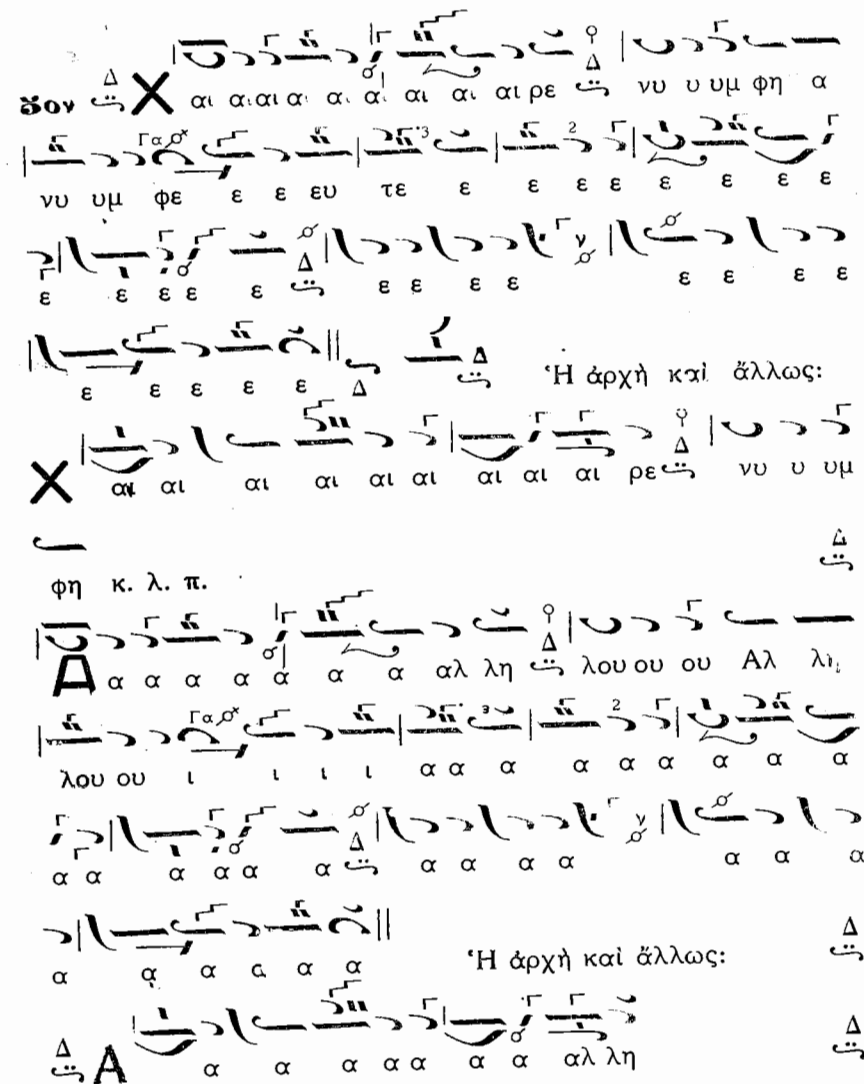 ὅον Δ Χ αι αι αι α α α αι αι αι ρε Δ νυ υ υμ φη α
Γα 3 2
νυ υμ φε ε ε ευ τε ε ε ε ε ε ε ε ε
Δ ν
ε ε ε ε ε ε ε ε ε ε ε ε ε
ε ε ε ε ε Δ Δ Ἡ ἀρχὴ καὶ ἄλλως:
Χ αι αι αι αι αι αι αι αι αι ρε Δ νυ υ υμ
φη κ. λ. π. Δ
Α α α α α α α α αλ λη Δ λου ου ου Αλ λι
Γα 3 2
λου ου ι ι ι ι α α α α α α α α α
Δ ν
α α α α α α α α α α α α α
α α α α α α Ἡ ἀρχὴ καὶ ἄλλως: Δ
Δ Α α α α α α α α αλ λη Δ